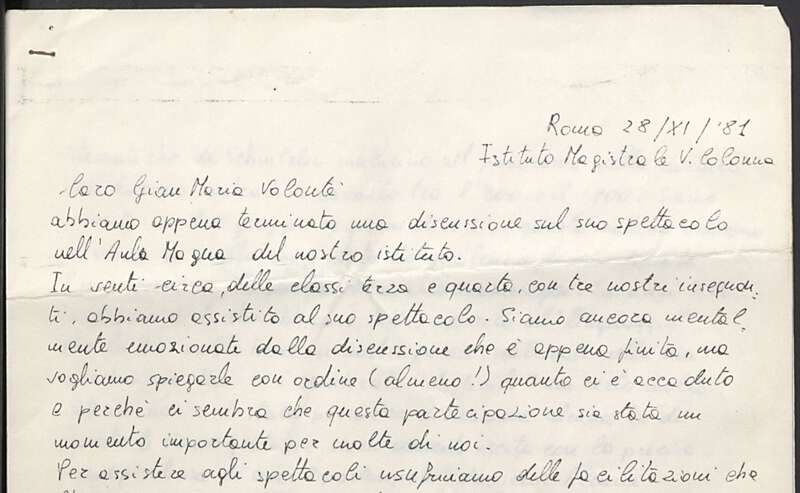 Roma 28/XI/'81
Istituto Magistrale V. Colonna
Caro Gian Maria Volonté
abbiamo appena terminato una discussione sul suo spettacolo
nell'Aula Magna del nostro istituto.
In venti circa, delle classi terza e quarta, con tre nostri insegnan-
ti, abbiamo assistito al suo spettacolo. Siamo ancora mental_
mente emozionate dalla discussione che è appena finita, ma
vogliamo spiegarle con ordine (almeno!) quanto ci è accaduto
e perchè ci sembra che questa partecipazione sia stata un
momento importante per molte di noi.
Per assistere agli spettacoli usufruiamo delle facilitazioni che